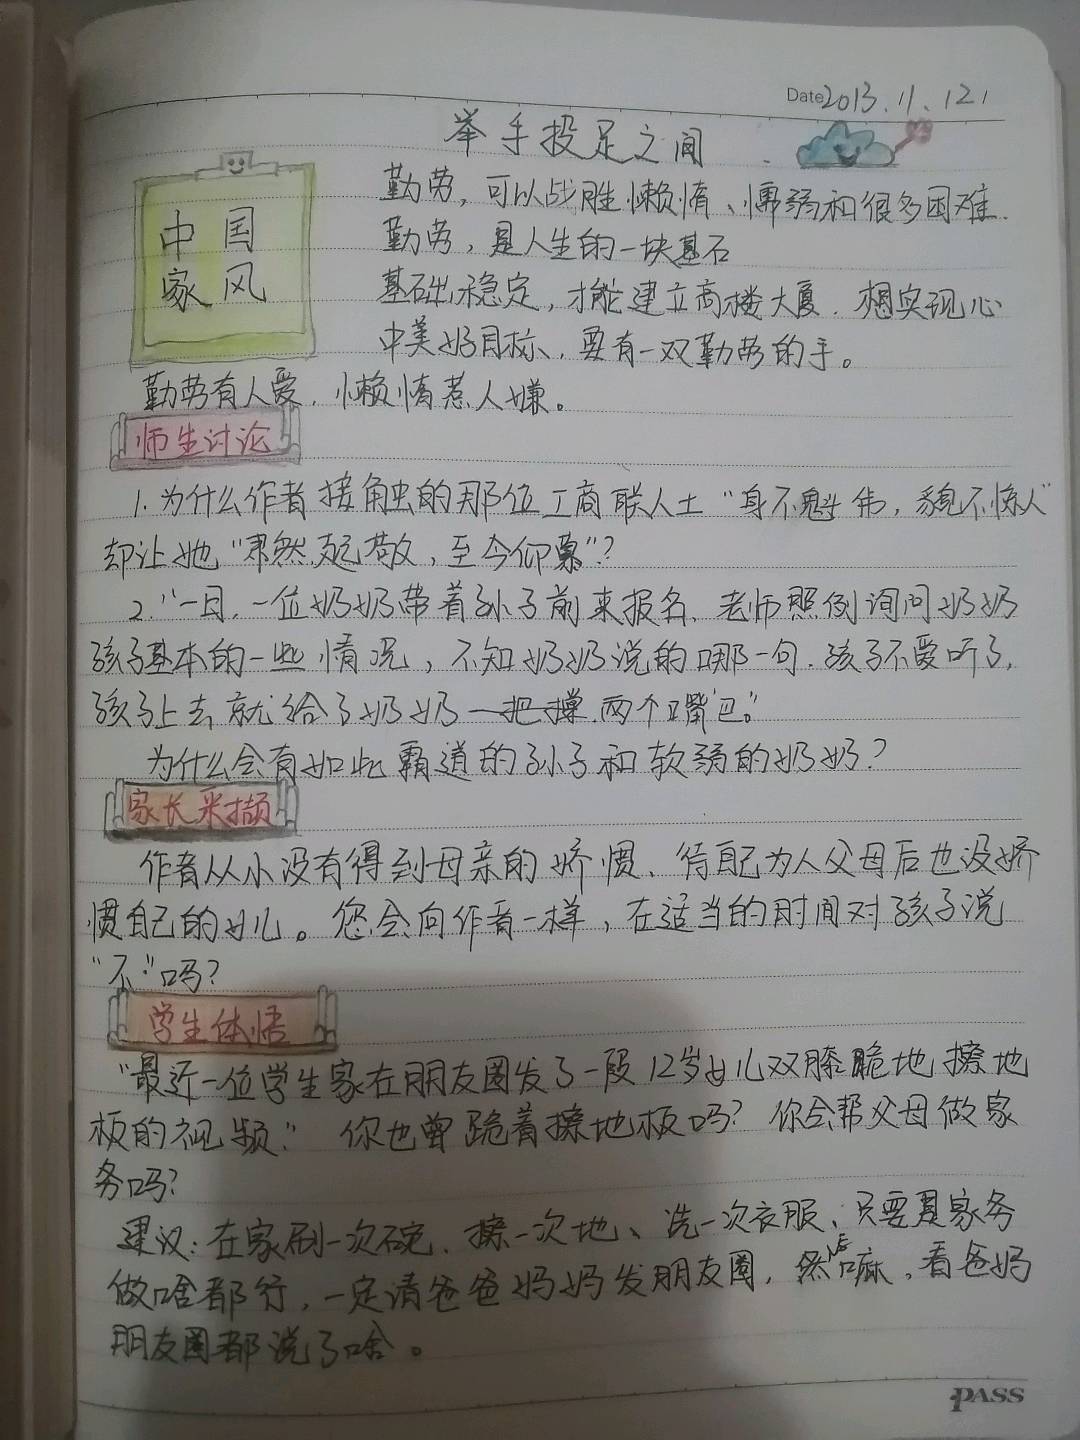 Date 2013.11.121
举手投足之间
中国
家风
勤劳，可以战胜懒惰、懦弱和很多困难.
勤劳，是人生的一块基石
基础稳定，才能建立高楼大厦.想实现心
中美好目标，要有一双勤劳的手。
勤劳有人爱.懒惰惹人嫌。
师生讨论
1.为什么作者接触的那位工商联人士“身不魁伟，貌不惊人”
却让她“肃然起敬，至今仰慕”？
2.“一日，一位奶奶带着孙子前来报名.老师照例询问奶奶
孩子基本的一些情况，不知奶奶说的哪一句.孩子不爱听了，
孩子上去就给了奶奶一把撑.两个嘴巴。”
为什么会有如此霸道的孙子和软弱的奶奶？
家长采撷
作者从小没有得到母亲的娇惯、待自己为人父母后也没娇
惯自己的女儿。您会向作者一样，在适当的时间对孩子说
“不”吗？
学生体悟
“最近一位学生家在朋友圈发了一段12岁女儿双膝脆地擦地
板的视频.”你也曾跪着擦地板吗？你会帮父母做家
务吗？
建议：在家刷一次碗、擦一次地、洗一次衣服、只要是家务
做啥都行，一定请爸爸妈妈发朋友圈，然嘛，看爸妈
朋友圈都说了啥。
PASS